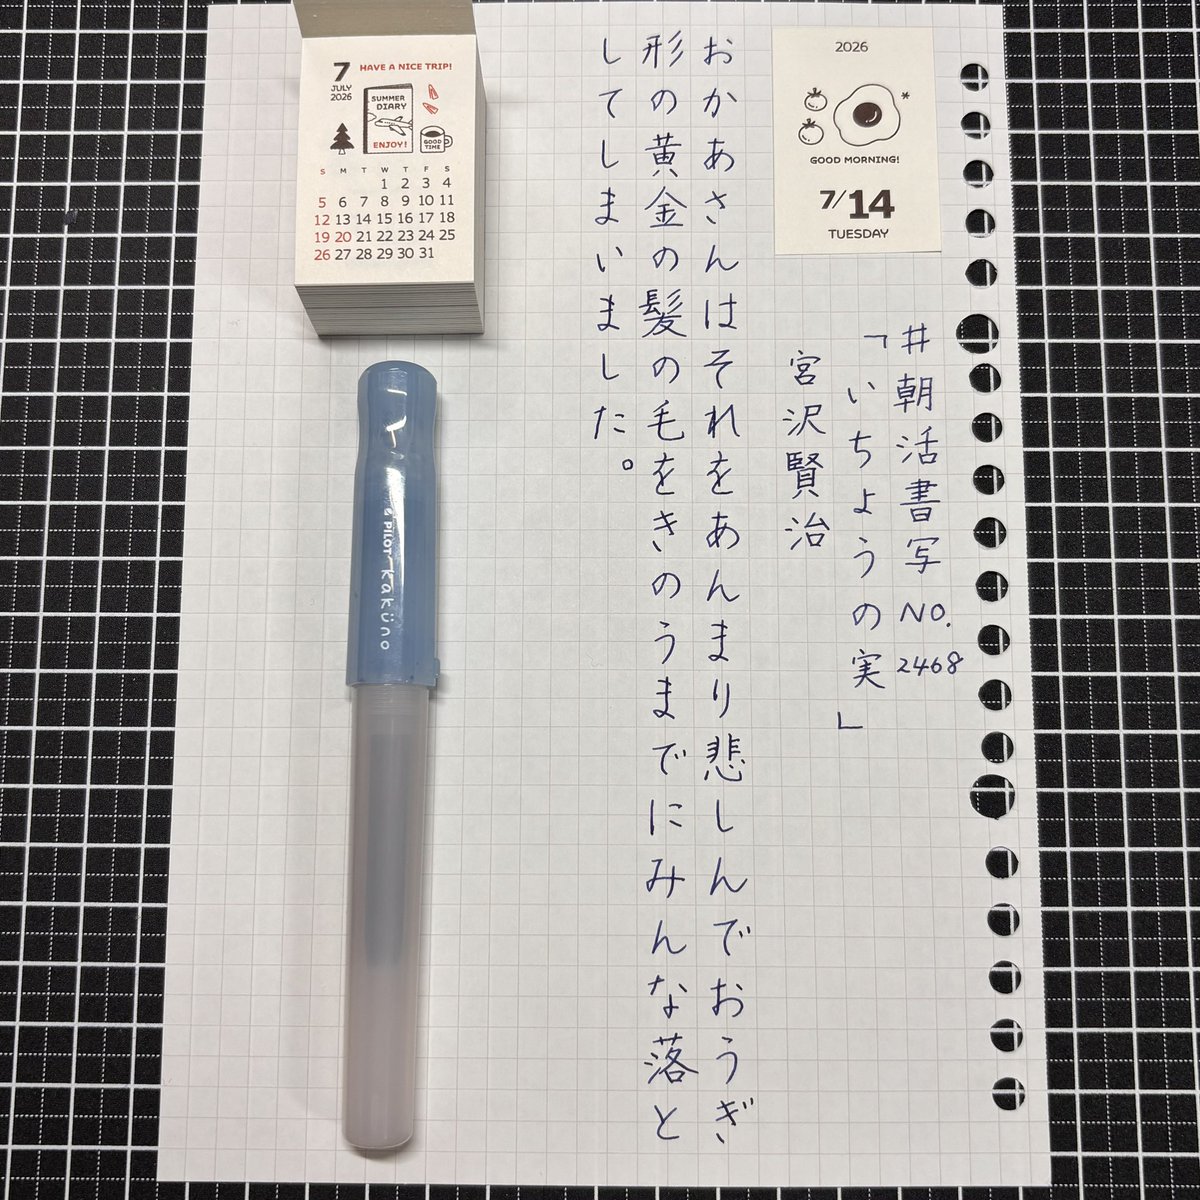 2026
GOOD MORNING!
7/14
TUESDAY
#朝活書写 NO. 2468
「いちょうの実」
宮沢賢治
おかあさんはそれをあんまり悲しんでおうぎ
形の黄金の髪の毛をきのうまでにみんな落と
してしまいました。
7
JULY
2026
HAVE A NICE TRIP!
SUMMER
DIARY
ENJOY!
GOOD
TIME
S M T W T F S
1 2 3 4
5 6 7 8 9 10 11
12 13 14 15 16 17 18
19 20 21 22 23 24 25
26 27 28 29 30 31
PILOT kaküno